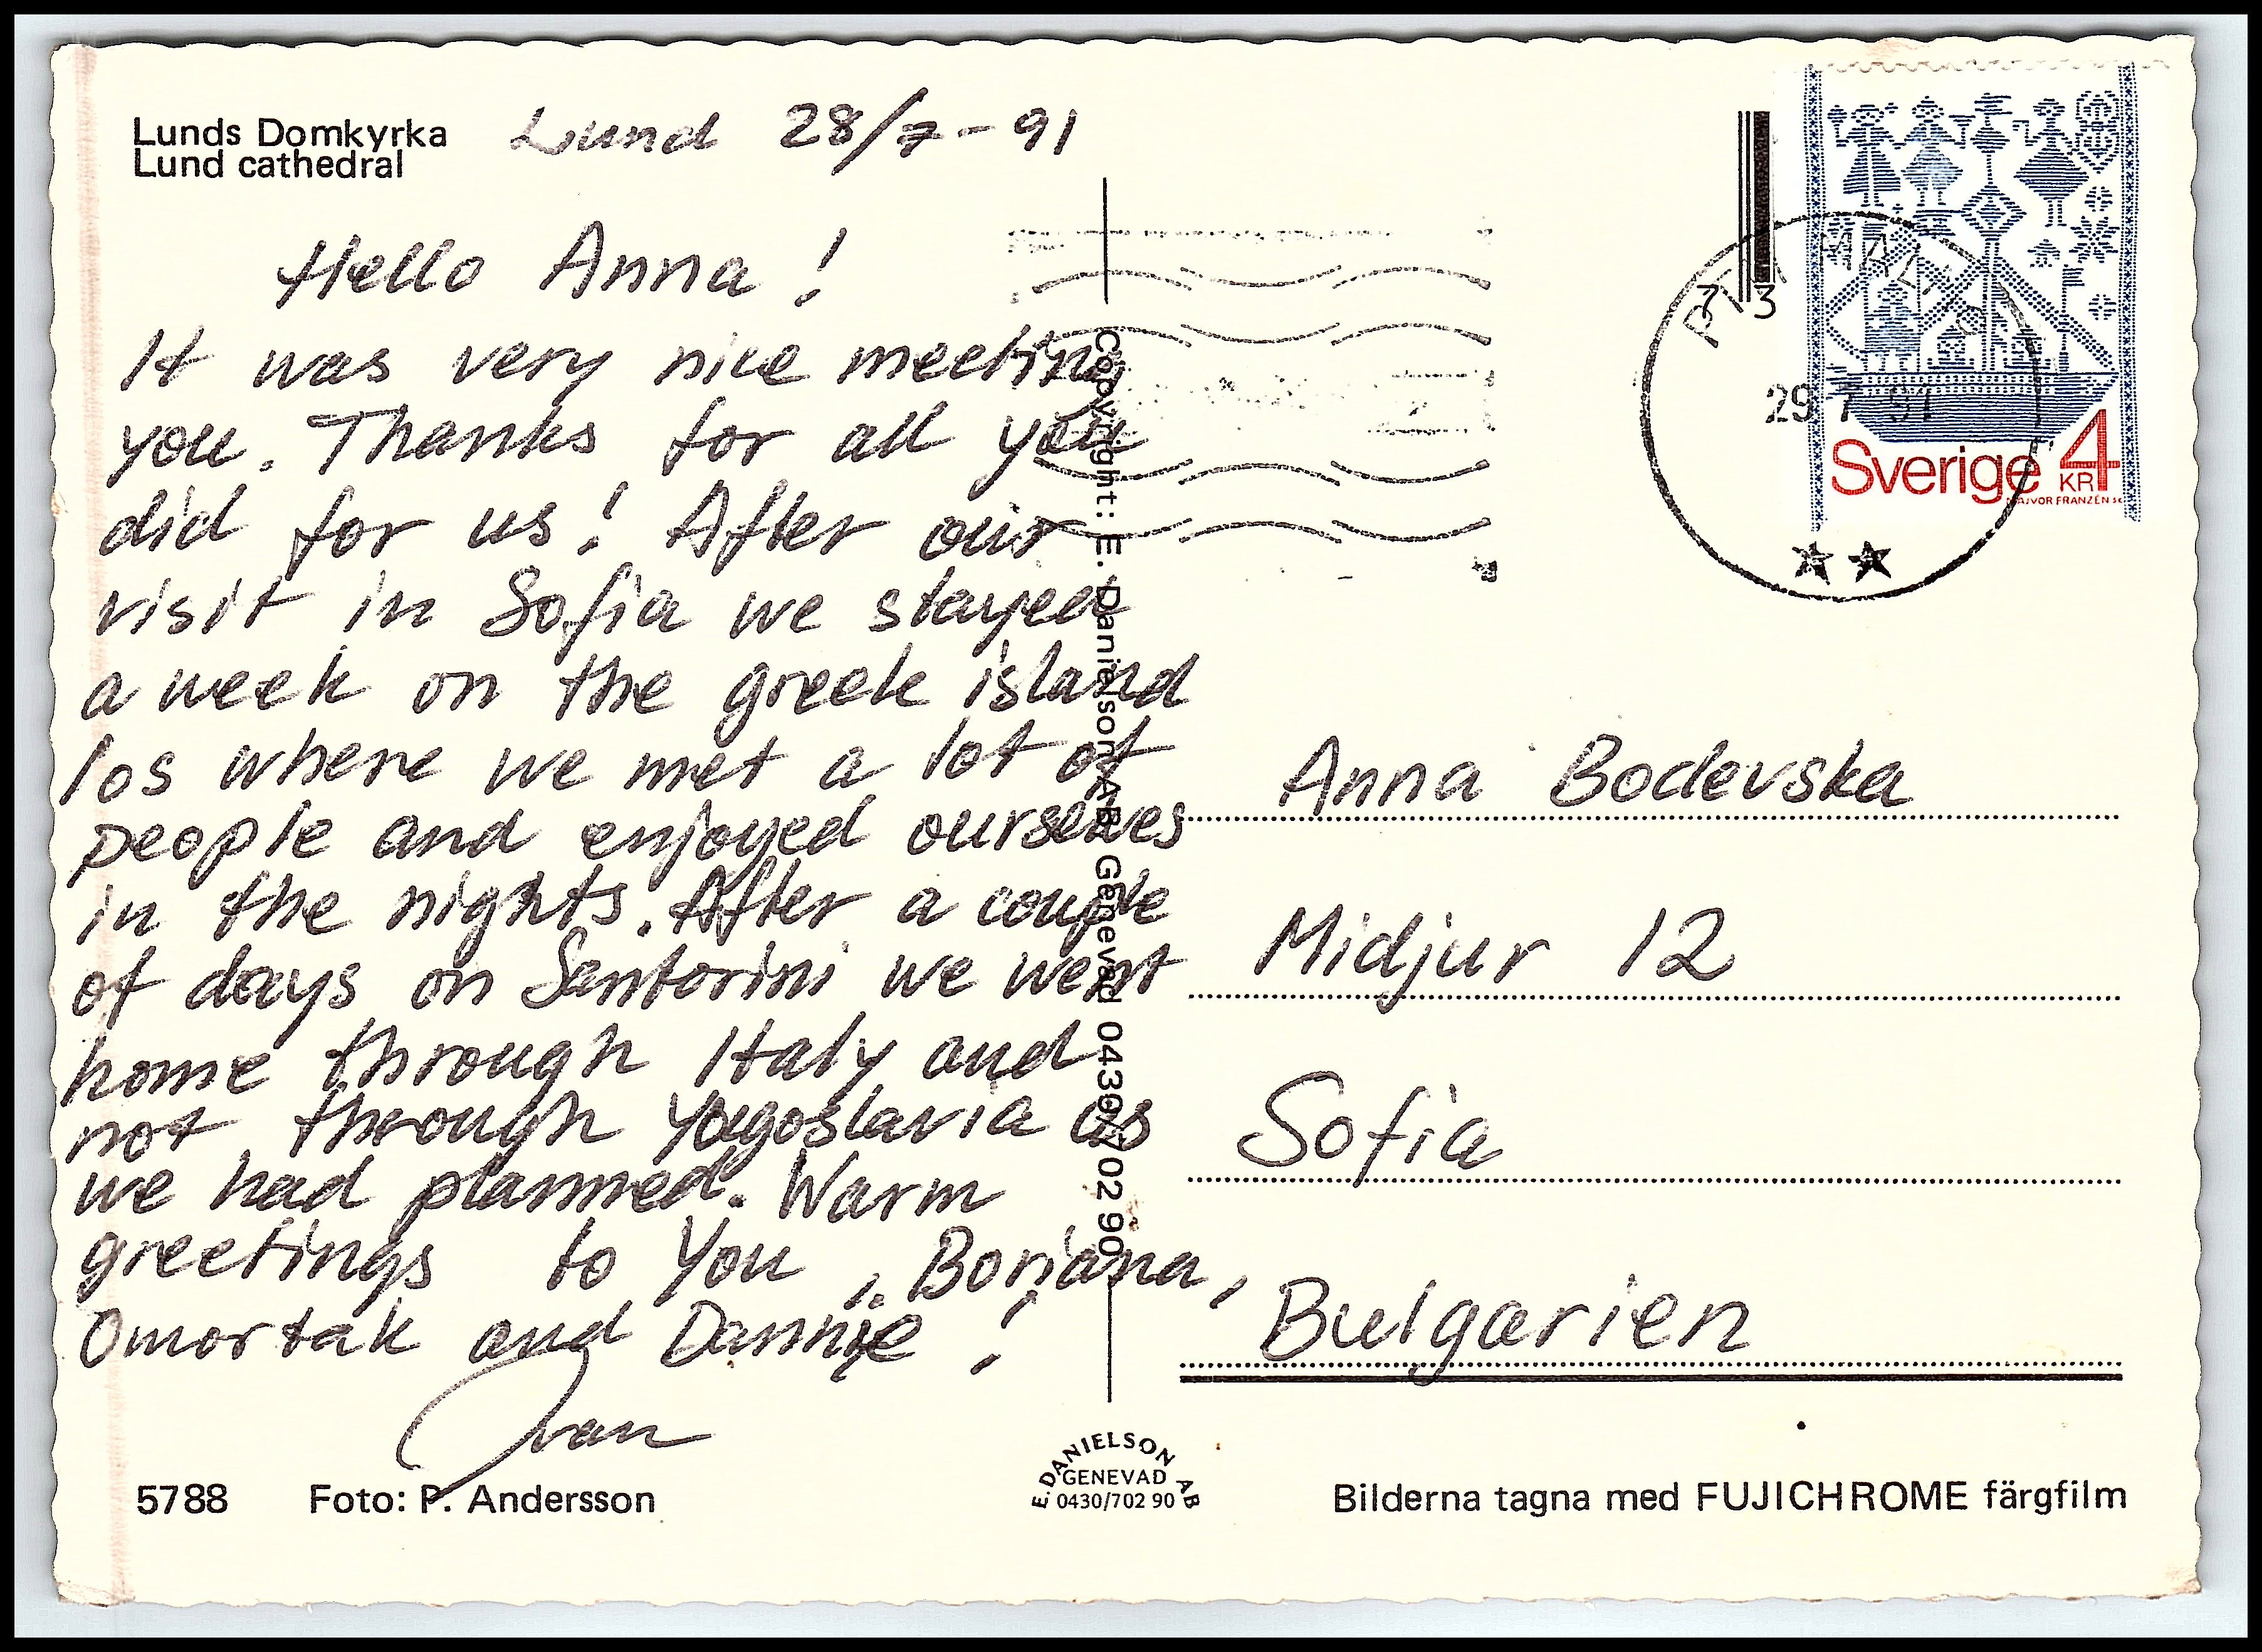 Lunds Domkyrka
Lund cathedral
Lund 28/7-91
Hello Anna!
It was very nice meeting
you. Thanks for all you
did for us! After our
visit in Sofia we stayed
a week on the greek island
Ios where we met a lot of
people and enjoyed ourselves
in the nights. After a couple
of days on Santorini we went
home through Italy and
not through Yogoslavia as
we had planned. Warm
greetings to You, Boriana,
Omortak and Dannie!
5788 Foto: P. Andersson
Copyright: E. Danielson AB, Genevad 0430/702 90
E. DANIELSON AB
GENEVAD
0430/702 90
73
MALMÖ
29 7 91
Sverige 4
KR
MAJVOR FRANZÉN SC
Anna Bodevska
Midjur 12
Sofia
Bulgarien
Bilderna tagna med FUJICHROME färgfilm